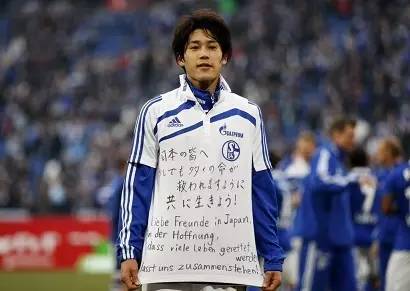 adidas
GAZPROM
日本の皆へ
でも多くの命が
救われますように
共に生きよう!
Liebe Freunde in Japan,
in der Hoffnung,
dass viele Leben gerettet
werden
lasst uns zusammenstehen!